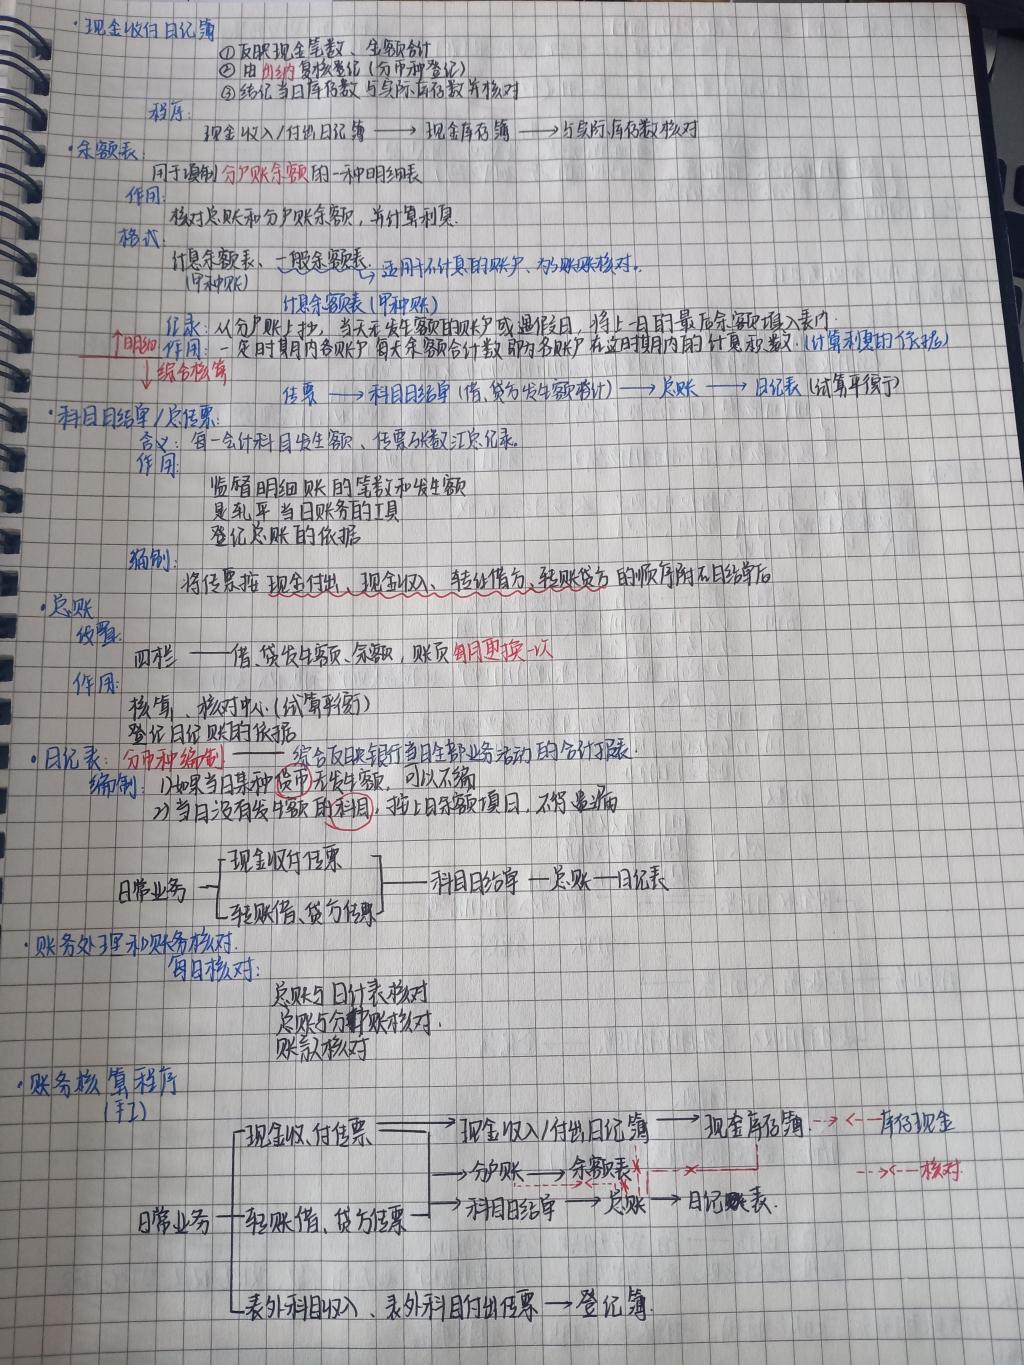 ·现金收付日记簿
①反映现金笔数、金额合计
②由出纳复核登记(分币种登记)
③结记当日库存数与实际库存数并核对
程序:
现金收入/付出日记簿 → 现金库存簿 → 与实际库存数核对
·余额表:
用于填制分户账余额的一种明细表
作用:
核对总账和分户账余额,并计算利息.
格式:
计息余额表、一般余额表. → 适用于不计息的账户、为了账账核对.
(甲种账)
计息余额表(甲种账)
记录:从分户账上抄,当天无发生额的账户或遇假日,将上一日的最后余额填入表内.
↑明细 作用:一定时期内各账户每天余额合计数即为各账户在这时期内的计息积数.(计算利息的依据)
↓综合核算
传票 → 科目日结单(借、贷方发生额合计) → 总账 → 日记表(试算平衡)
·科目日结单/总传票:
含义:每一会计科目发生额、传票张数汇总记录.
作用:
监督明细账的笔数和发生额
是轧平当日账务的工具
登记总账的依据
编制:
将传票按现金付出、现金收入、转账借方、转账贷方的顺序附在日结单后
·总账
设置:
四栏 —— 借、贷发生额、余额,账页每月更换一次
作用:
核算、核对中心(试算平衡)
登记日记账的依据
·日记表:分币种编制 —— 综合反映银行当日全部业务活动的会计报表.
编制:1)如果当日某种货币无发生额,可以不编
2)当日没有发生额的科目,按上日余额填日,不得遗漏
现金收付传票
日常业务 科目日结单 — 总账 — 日记表
转账借、贷方传票
·账务处理和账务核对.
每日核对:
总账与日计表核对
总账与分户账核对.
账款核对
·账务核算程序
(手工)
现金收、付传票 → 现金收入/付出日记簿 → 现金库存簿 --><-- 库存现金
→ 分户账 → 余额表 --><-- 核对
日常业务 转账借、贷方传票 → 科目日结单 → 总账 → 日记表.
表外科目收入、表外科目付出传票 → 登记簿.